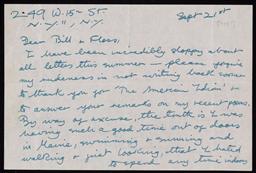 249 W. 15 St.
N.Y. 11, N.Y.
Sept 21st
Dear Bill & Floss,
I have been incredibly sloppy about
all letters this summer — please forgive
my rudeness in not writing back sooner
to thank you for "The American Idiom" & to
answer your remarks on my recent poems.
By way of excuse, the truth is I was
having such a good time out of doors
in Maine, swimming & running and
walking & just looking, that I hated
to spend any time indoors